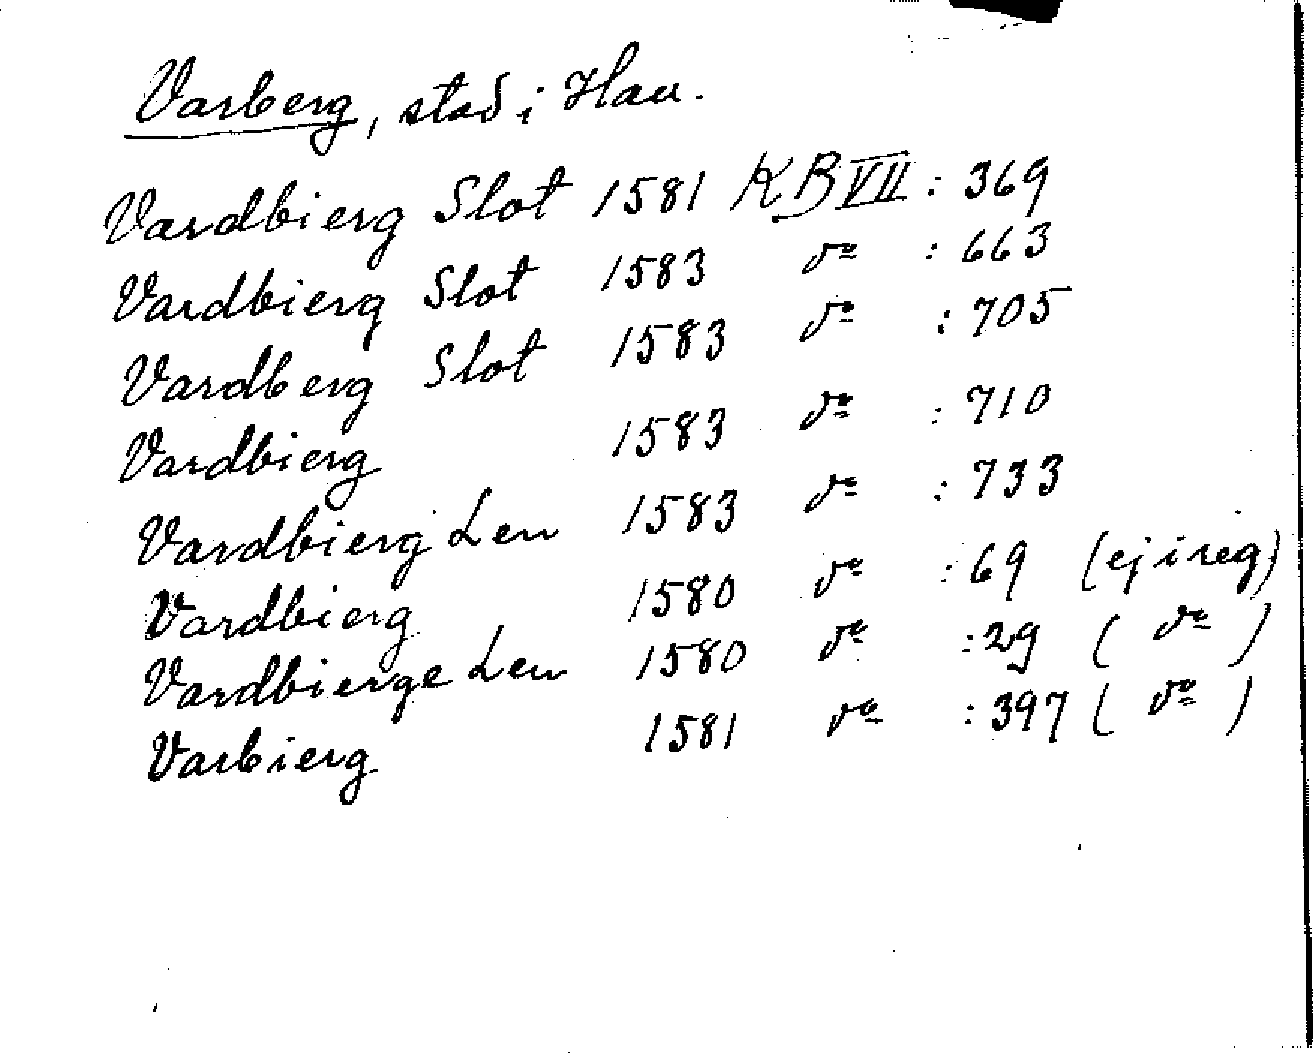 Varberg, stad i Hall.
Vardbierg Slot 1581 KB VII : 369
Vardbierg Slot 1583 do : 663
Vardberg Slot 1583 do : 705
Vardbierg 1583 do : 710
Vardbierg Len 1583 do : 733
Vardbierg 1580 do : 69 (ej i reg)
Vardbierge Len 1580 do : 29 ( do )
Varbierg 1581 do : 397 ( do )